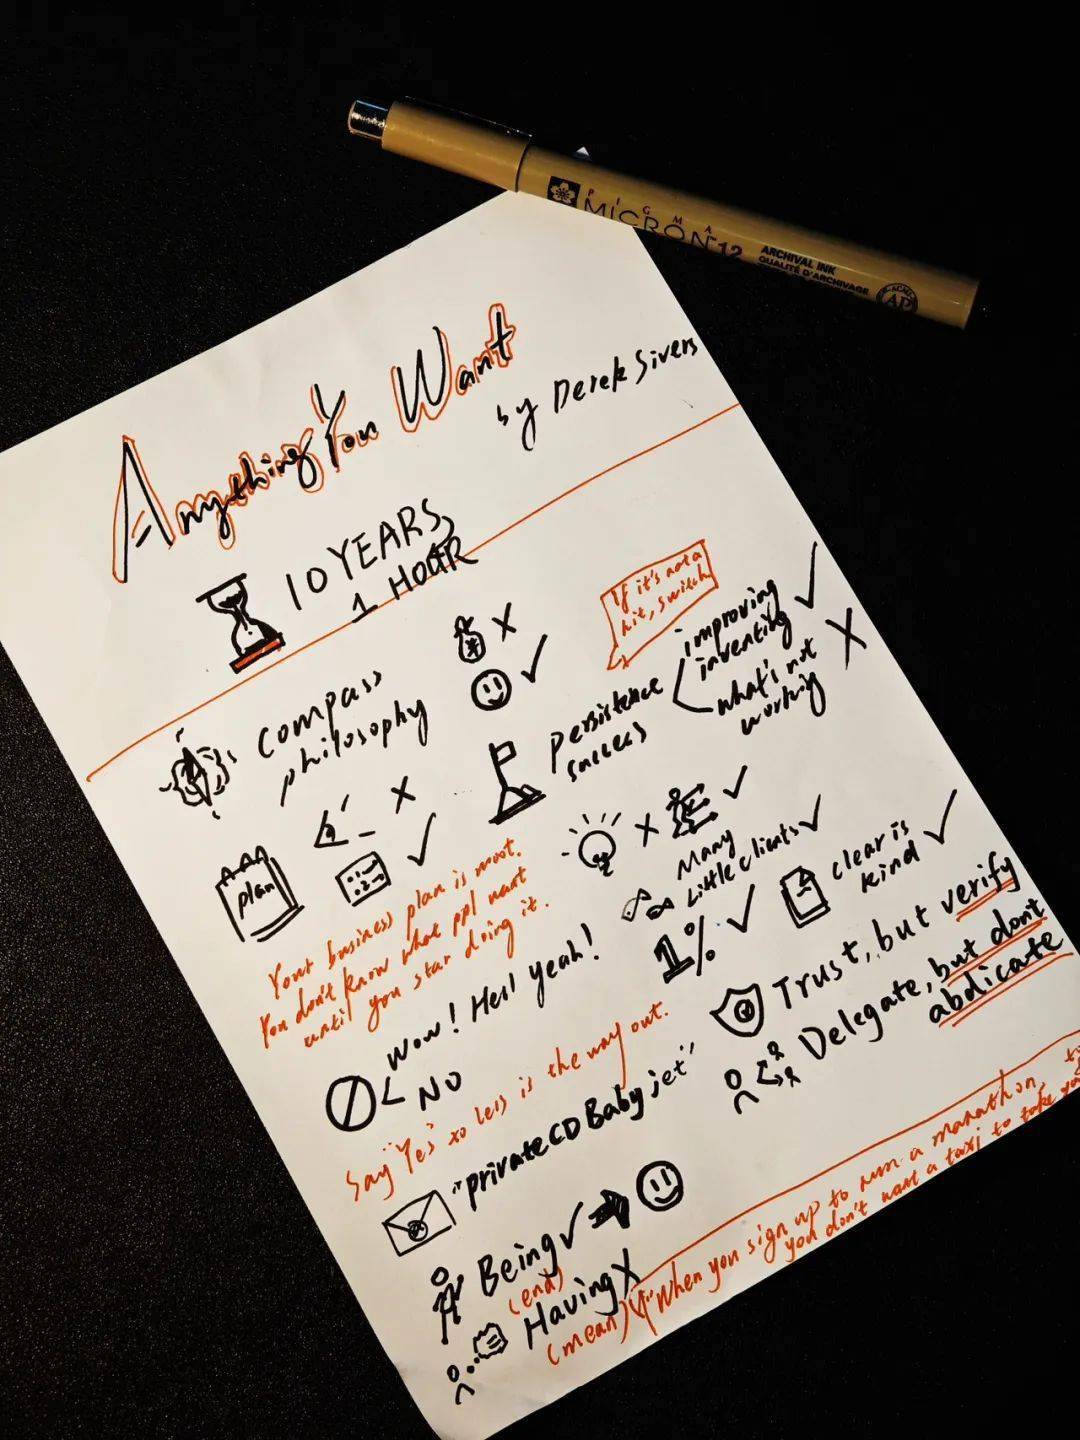 PIGMA
MICRON 12
ARCHIVAL INK
QUALITÉ D'ARCHIVAGE
AP
Anything You Want
by Derek Sivers
10 YEARS,
1 HOUR
compass
philosophy
If it's not a
hit, switch
persistence
success
improving
inventing
what's not
working
plan
Your business plan is moot.
You don't know what ppl want
until you star doing it.
Many
Little clients
1%
clear is
kind
Wow! Hell yeah!
NO
Say "Yes" to less is the way out.
Trust, but verify
Delegate, but don't
abdicate
"private CD Baby jet"
Being
(end)
Having
(mean)
"When you sign up to run a marathon,
you don't want a taxi to take you